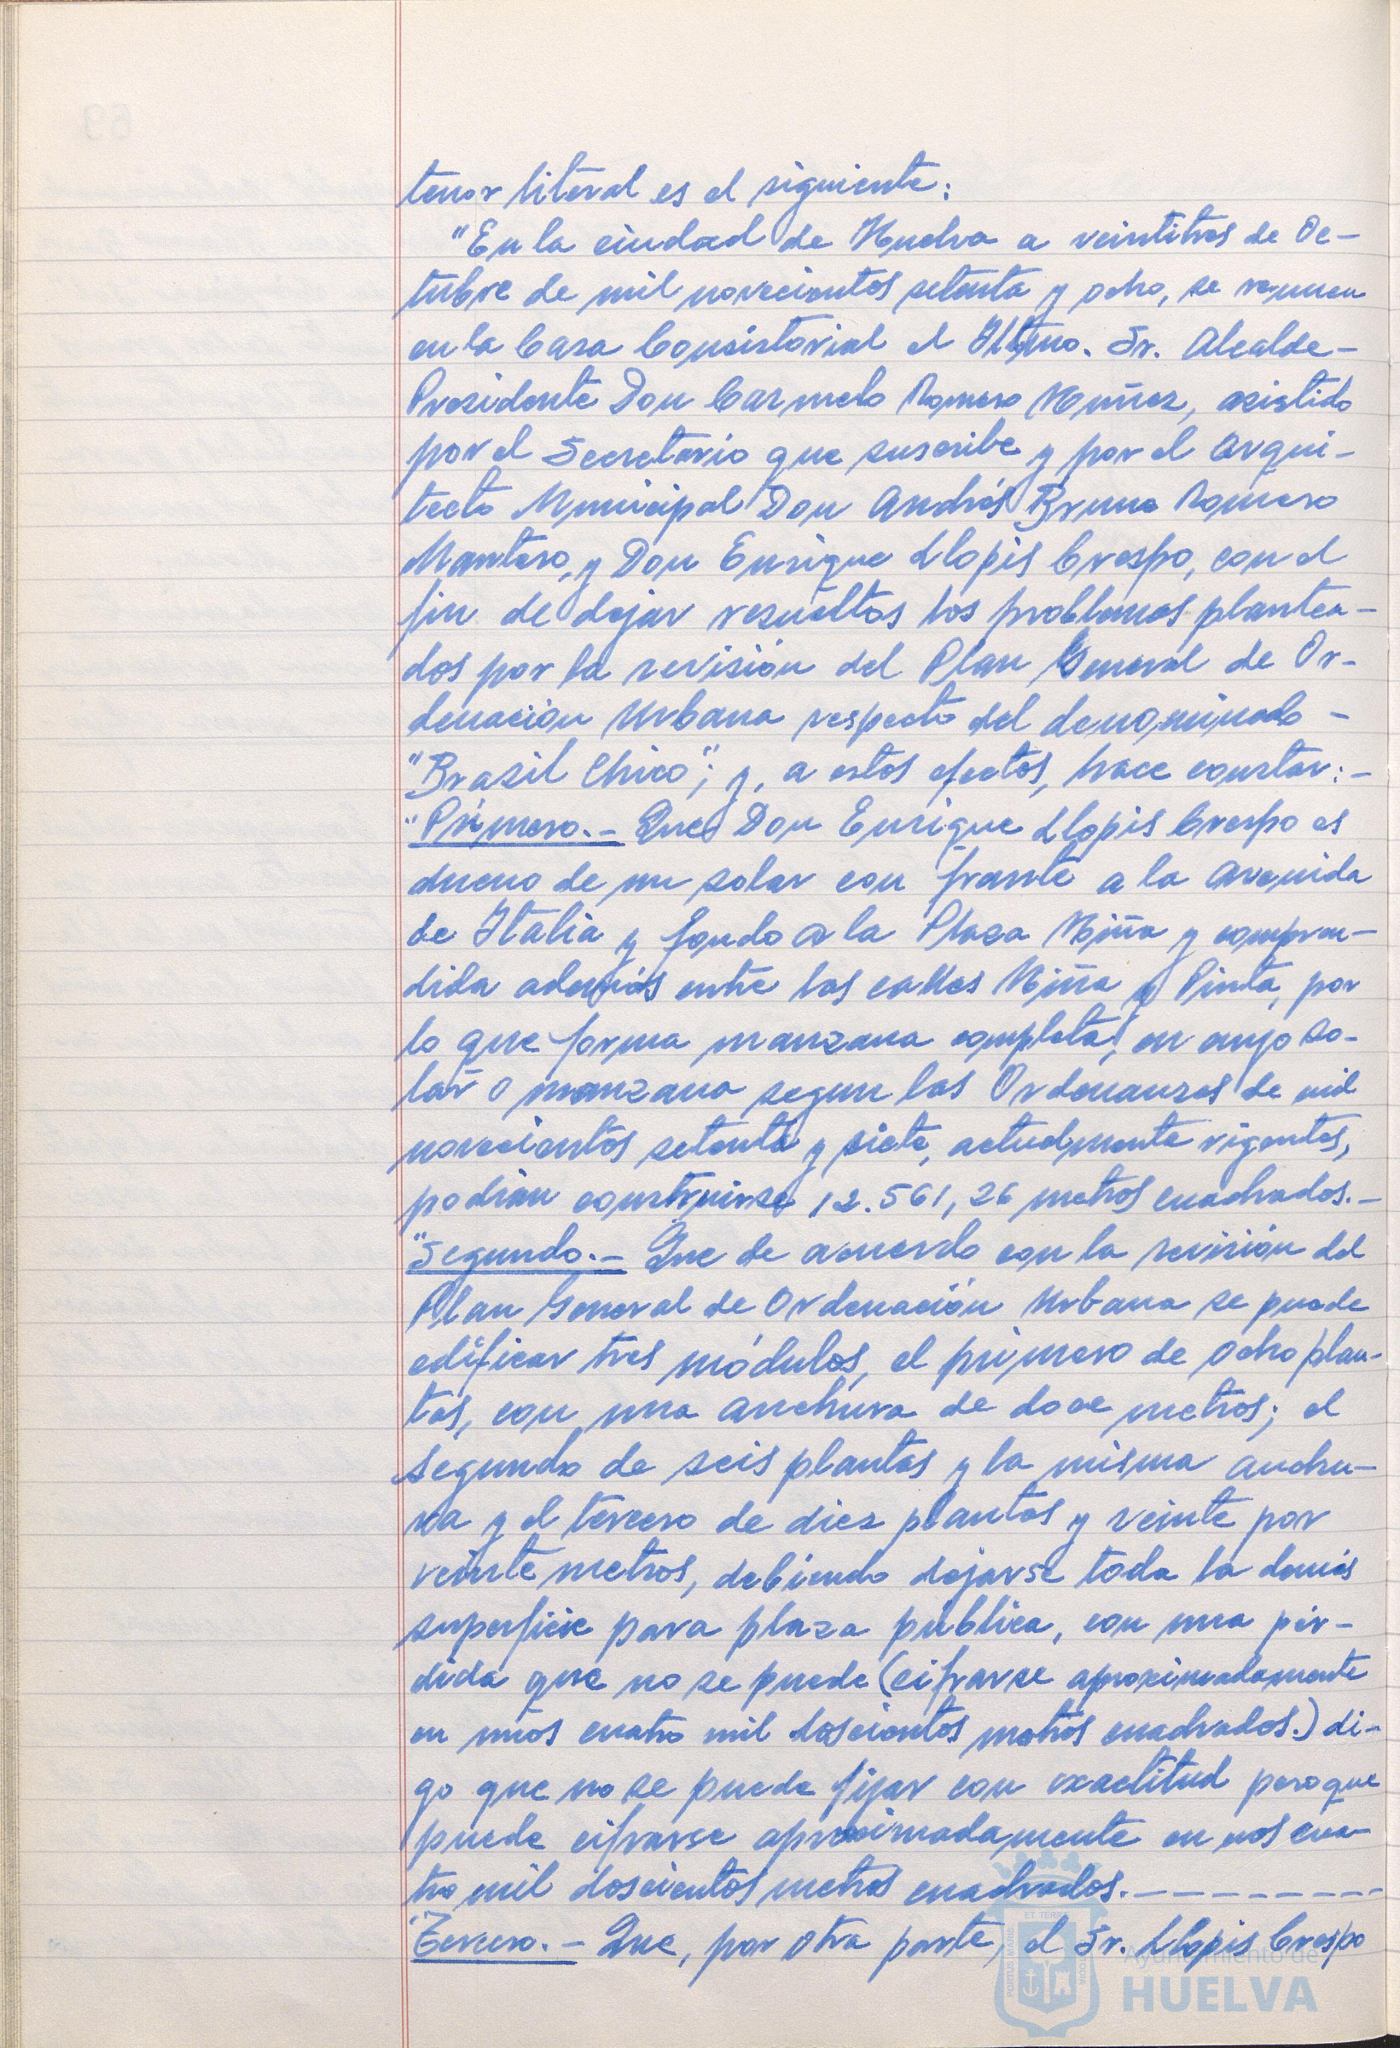 tenor literal es el siguiente:
"En la ciudad de Huelva a veintitres de Oc-
tubre de mil novecientos setenta y ocho, se reunen
en la Casa Consistorial el Iltmo. Sr. Alcalde-
Presidente Don Carmelo Romero Núñez, asistido
por el Secretario que suscribe y por el Arqui-
tecto Municipal Don Andrés Bruno Romero
Mantero, y Don Enrique Llopis Crespo, con el
fin de dejar resueltos los problemas plantea-
dos por la revisión del Plan General de Or-
denación Urbana respecto del denominado -
"Brasil Chico"; y, a estos efectos, hace constar: -
"Primero.- Que Don Enrique Llopis Crespo es
dueno de un solar con frante a la Avenida
de Italia y fondo a la Plaza Niña y compren-
dida además entre las calles Niña y Pinta, por
lo que forma manzana completa, en cuyo so-
lar o manzana segun las Ordenanzas de mil
novecientos setenta y siete, actualmente vigentes,
podrian construirse 12.561,26 metros cuadrados.-
"Segundo.- Que de acuerdo con la revisión del
Plan General de Ordenación Urbana se puede
edificar tres módulos, el primero de ocho plan-
tas, con una anchura de doce metros; el
segundo de seis plantas y la misma anchu-
ra y el tercero de diez plantas y veinte por
veinte metros, debiendo dejarse toda la demás
superficie para plaza pública, con una pér-
dida que no se puede (cifrarse aproximadamente
en unos cuatro mil doscientos metros cuadrados.) di-
go que no se puede fijar con exactitud pero que
puede cifrarse aproximadamente en unos cua-
tro mil doscientos metros cuadrados.- - - - - - - -
"Tercero.- Que, por otra parte, el Sr. Llopis Crespo
PORTUS MARIS ET TERRE CUSTODIA
Ayuntamiento de
HUELVA